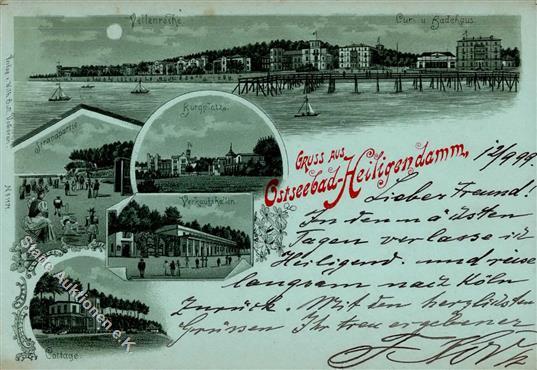 Villenreihe.
Cur- u. Badehaus.
Burgplatz.
Strandpartie.
Verkaufshallen.
Cottage.
GRUSS AUS
OSTSEEBAD-HEILIGENDAMM,
12/9 99.
Lieber Freund!
In den nächsten
Tagen verlasse ich
Heiligend. und reise
langsam nach Köln
zurück. Mit den herzlichsten
Grüssen Ihr treu ergebener
Stade Auktionen